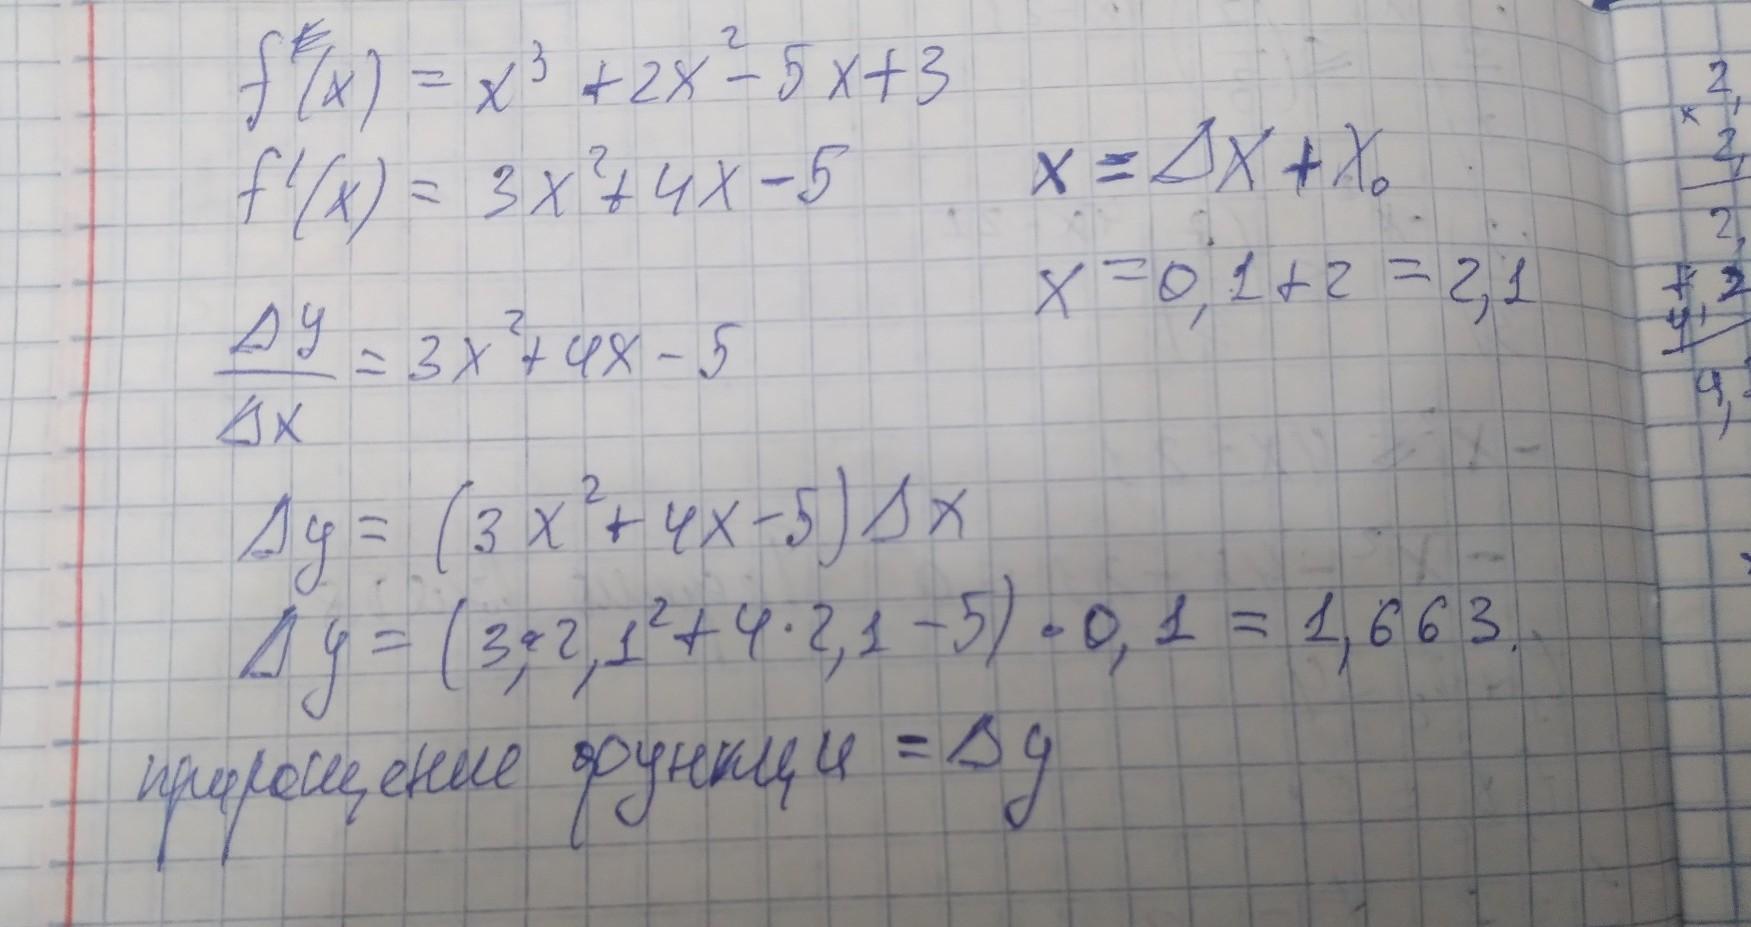 f'(x) = x³ + 2x² - 5x + 3
f'(x) = 3x² + 4x - 5
x = Δx + x₀
x = 0,1 + 2 = 2,1
Δy/Δx = 3x² + 4x - 5
Δy = (3x² + 4x - 5) Δx
Δy = (3 · 2,1² + 4 · 2,1 - 5) · 0,1 = 1,663.
приращение функции = Δy